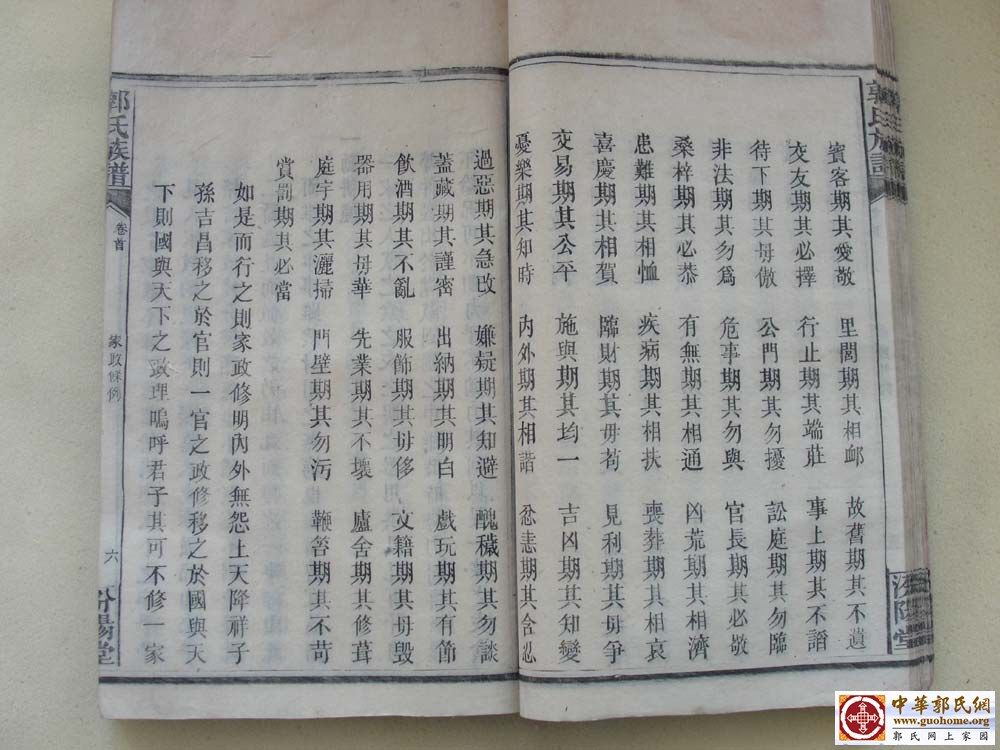 賓客期其愛敬 里閭期其相卹 故舊期其不遺
交友期其必擇 行止期其端莊 事上期其不諂
待下期其毋傲 公門期其勿擾 訟庭期其勿臨
非法期其勿爲 危事期其勿與 官長期其必敬
桑梓期其必恭 有無期其相通 凶荒期其相濟
患難期其相恤 疾病期其相扶 喪葬期其相哀
喜慶期其相賀 臨財期其毋茍 見利期其毋爭
交易期其公平 施與期其均一 吉凶期其知變
憂樂期其知時 內外期其相諧 忿恚期其含忍
過惡期其急改 嫌疑期其知避 醜穢期其勿談
蓋藏期其謹密 出納期其明白 戲玩期其有節
飲酒期其不亂 服飾期其毋侈 文籍期其毋毀
器用期其毋華 先業期其不壞 廬舍期其修葺
庭宇期其灑掃 門壁期其勿污 鞭笞期其不苛
賞罰期其必當
如是而行之則家政修明內外無怨上天降祥子
孫吉昌移之於官則一官之政修移之於國與天
下則國與天下之政理嗚呼君子其可不修一家
郭氏族譜
卷首
家政條例
六
汾陽堂
中華郭氏網
www.guohome.org
郭氏网上家园